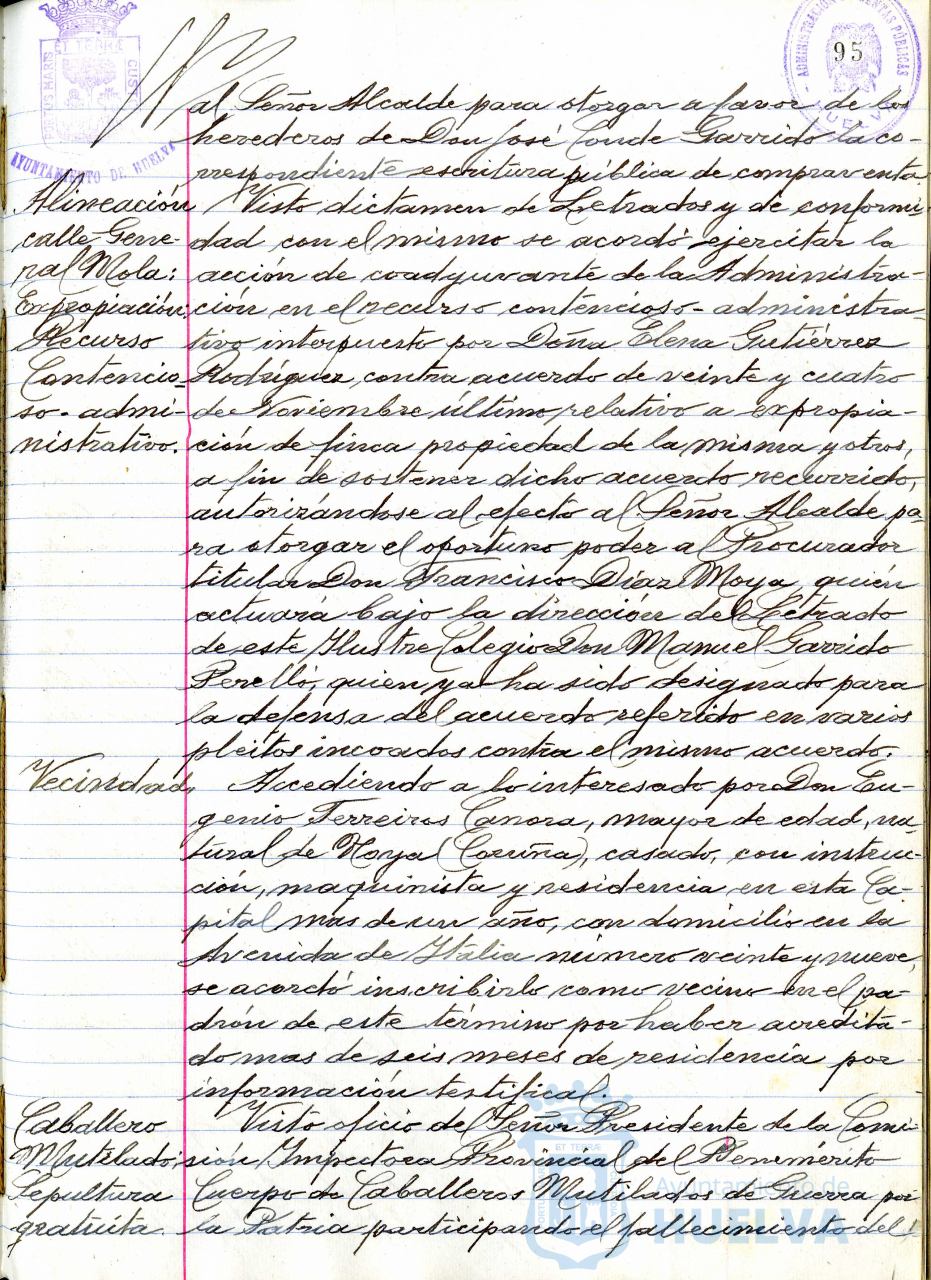 95
PORTUS MARIS ET TERRÆ CUSTODIA
AYUNTAMIENTO DE HUELVA
al Señor Alcalde para otorgar a favor de los
herederos de Don José Conde Garrido la co-
rrespondiente escritura pública de compraventa.
Alineación
calle Gene-
ral Mola:
Expropiación:
Recurso
Contencio-
so-admi-
nistrativo.
Visto dictamen de Letrados y de conformi-
dad con el mismo se acordó ejercitar la
acción de coadyuvante de la Administra-
ción en el recurso contencioso-administra-
tivo interpuesto por Doña Elena Gutiérrez
Rodríguez, contra acuerdo de veinte y cuatro
de Noviembre último, relativo a expropia-
ción de finca propiedad de la misma y otros,
a fin de sostener dicho acuerdo recurrido,
autorizándose al efecto al Señor Alcalde pa-
ra otorgar el oportuno poder al Procurador
titular Don Francisco Díaz Moya, quién
actuará bajo la dirección del Letrado
de este Ilustre Colegio Don Manuel Garrido
Perelló, quien ya ha sido designado para
la defensa del acuerdo referido en varios
pleitos incoados contra el mismo acuerdo.
Vecindad,
Accediendo a lo interesado por Don Eu-
genio Ferreiros Canora, mayor de edad, na-
tural de Noya (Coruña), casado, con instruc-
ción, maquinista y residencia en esta Ca-
pital mas de un año, con domicilio en la
Avenida de Italia número veinte y nueve,
se acordó inscribirlo como vecino en el pa-
drón de este término por haber acredita-
do mas de seis meses de residencia por
información testifical.
Caballero
Mutilado:
Sepultura
gratuita.
Visto oficio del Señor Presidente de la Comi-
sión Inspectora Provincial del Benemérito
Cuerpo de Caballeros Mutilados de Guerra por
la Patria participando el fallecimiento del
Ayuntamiento de
HUELVA